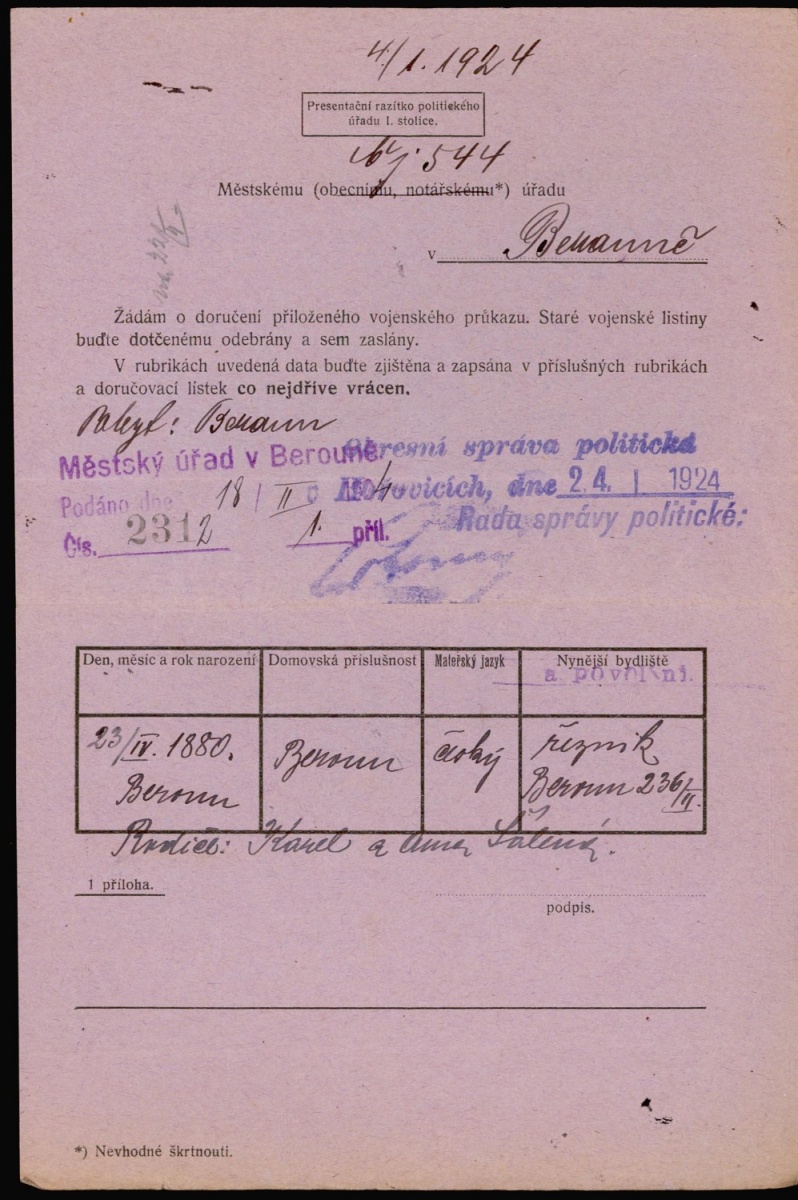 4/1. 1924
Presentační razítko politického
úřadu I. stolice.
Nj 544
Městskému (obecnímu, notářskému*) úřadu
v Berouně
Žádám o doručení přiloženého vojenského průkazu. Staré vojenské listiny
buďte dotčenému odebrány a sem zaslány.
V rubrikách uvedená data buďte zjištěna a zapsána v příslušných rubrikách
a doručovací lístek co nejdříve vrácen.
Pobyt: Beroun
Městský úřad v Berouně
Podáno dne 18/II
Čís. 2312 1. příl.
Okresní správa politická
Hořovicích, dne 24. I 1924
Rada správy politické:
Den, měsíc a rok narození Domovská příslušnost Mateřský jazyk Nynější bydliště
a povolání.
23/IV. 1880. Beroun český řezník
Beroun Beroun 236/II.
Rodiče: Karel a Anna
1 příloha.
podpis.
*) Nevhodné škrtnouti.